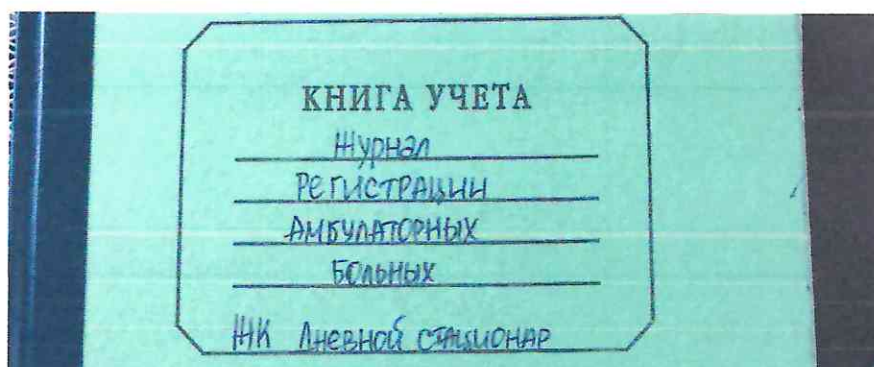 КНИГА УЧЕТА
Журнал
РЕГИСТРАЦИИ
АМБУЛАТОРНЫХ
БОЛЬНЫХ
ЖК Дневной стационар